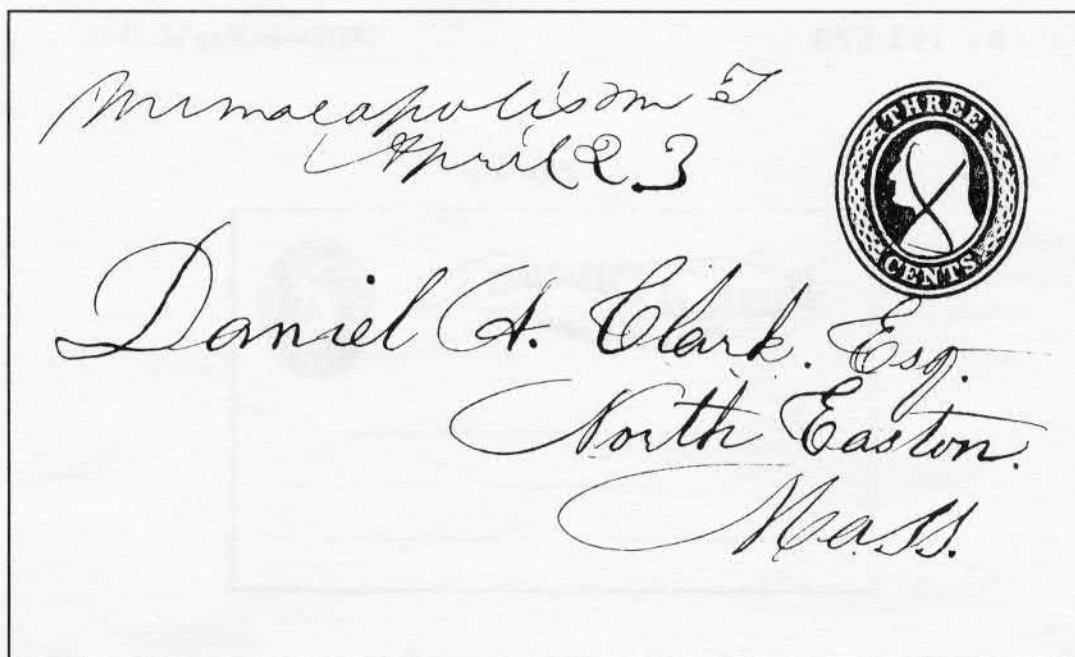 Minneapolis M T
April 23
THREE
CENTS
Daniel A. Clark. Esq.
North Easton.
Mass.